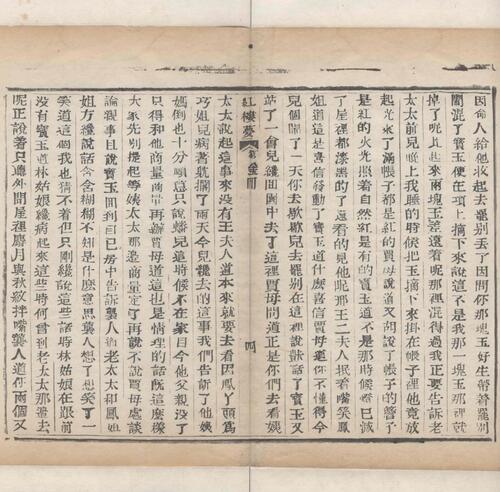 因命人給他收起去罷別丢了因問你那塊玉好生帶着罷別
鬧混了寳玉便在項上摘下來說這不是我那一塊玉那裡就
掉了呢比起來兩塊玉差遠着呢那裡混得過我正要告訴老
太太前兒晚上我睡的時候把玉摘下來掛在帳子裡他竟放
起光來了滿帳子都是紅的賈母說道又胡說了帳子的簷子
是紅的火光照着自然紅是有的寳玉道不是那時候燈已滅
了屋裡都漆黑的了還看的見他呢那王二夫人抿着嘴笑鳳
姐道這是喜信發動了寳玉道什麽喜信賈母道你不懂得今
兒個鬧了一天你去歇歇兒去罷別在這裡說獃話了寳玉又
站了一會兒纔回園中去了這裡賈母問道正是你們去看姨
紅樓夢 第 回 四
太太說起這事來没有王夫人道本來就要去看因鳳丫頭爲
巧姐兒病着躭擱了兩天今兒纔去的這事我們告訴了他姨
媽倒也十分願意只說蟠兒這時候不在家目今他父親没了
只得和他商量商量再辦賈母道這也是情理的話旣這麽樣
大家先別提起等姨太太那邊商量定了再說不說賈母處談
論親事且說寳玉回到自已房中告訴襲人說老太太和鳳姐
姐方纔說話含含糊糊不知是什麽意思襲人想了想笑了一
笑道這個我也猜不着但只剛纔說這些話時林姑娘在跟前
没有寳玉道林姑娘纔病起來這些時何曾到老太太那邊去
呢正說着只聽外間屋裡麝月與秋紋拌嘴襲人道你兩個又